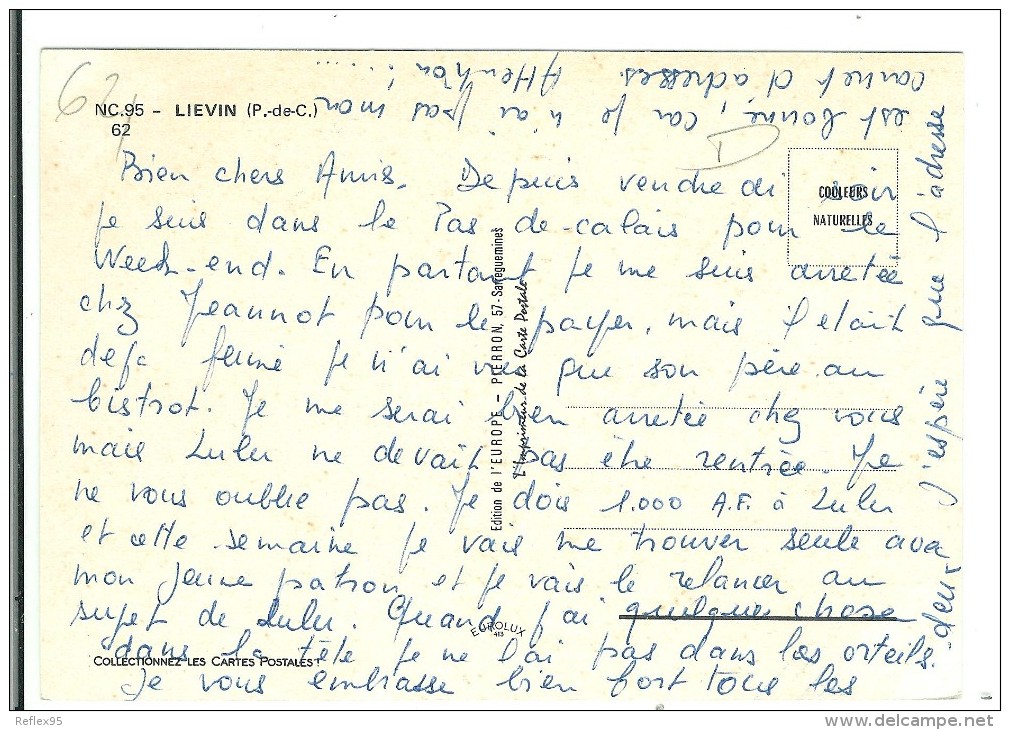 62
NC.95 - LIEVIN (P.-de-C.)
62
COULEURS
NATURELLES
Bien chers Amis. Depuis vendredi soir
je suis dans le Pas-de-calais pour le
Week-end. En partant je me suis arretée
chez Jeannot pour le payer, mais il etait
deja fermé je n'ai vu que son père au
bistrot. Je me serai bien arretée chez vous
mais Lulu ne devait pas être rentrée. Je
ne vous oublie pas. Je dois 1.000 A.F. à Lulu
et cette semaine je vais me trouver seule avec
mon jeune patron et je vais le relancer au
sujet de Lulu. Quand j'ai quelque chose
dans la tête je ne l'ai pas dans les orteils.
Je vous embrasse bien fort tous les
deux
J'espère que l'adresse
est bonne, car je n'ai pas mon
carnet d'adresses. Attention !.....
Edition de l'EUROPE - PIERRON, 57-Sarreguemines
L'Imprimeur de la Carte Postale
EUROLUX
413
COLLECTIONNEZ LES CARTES POSTALES !
Reflex95
www.delcampe.net